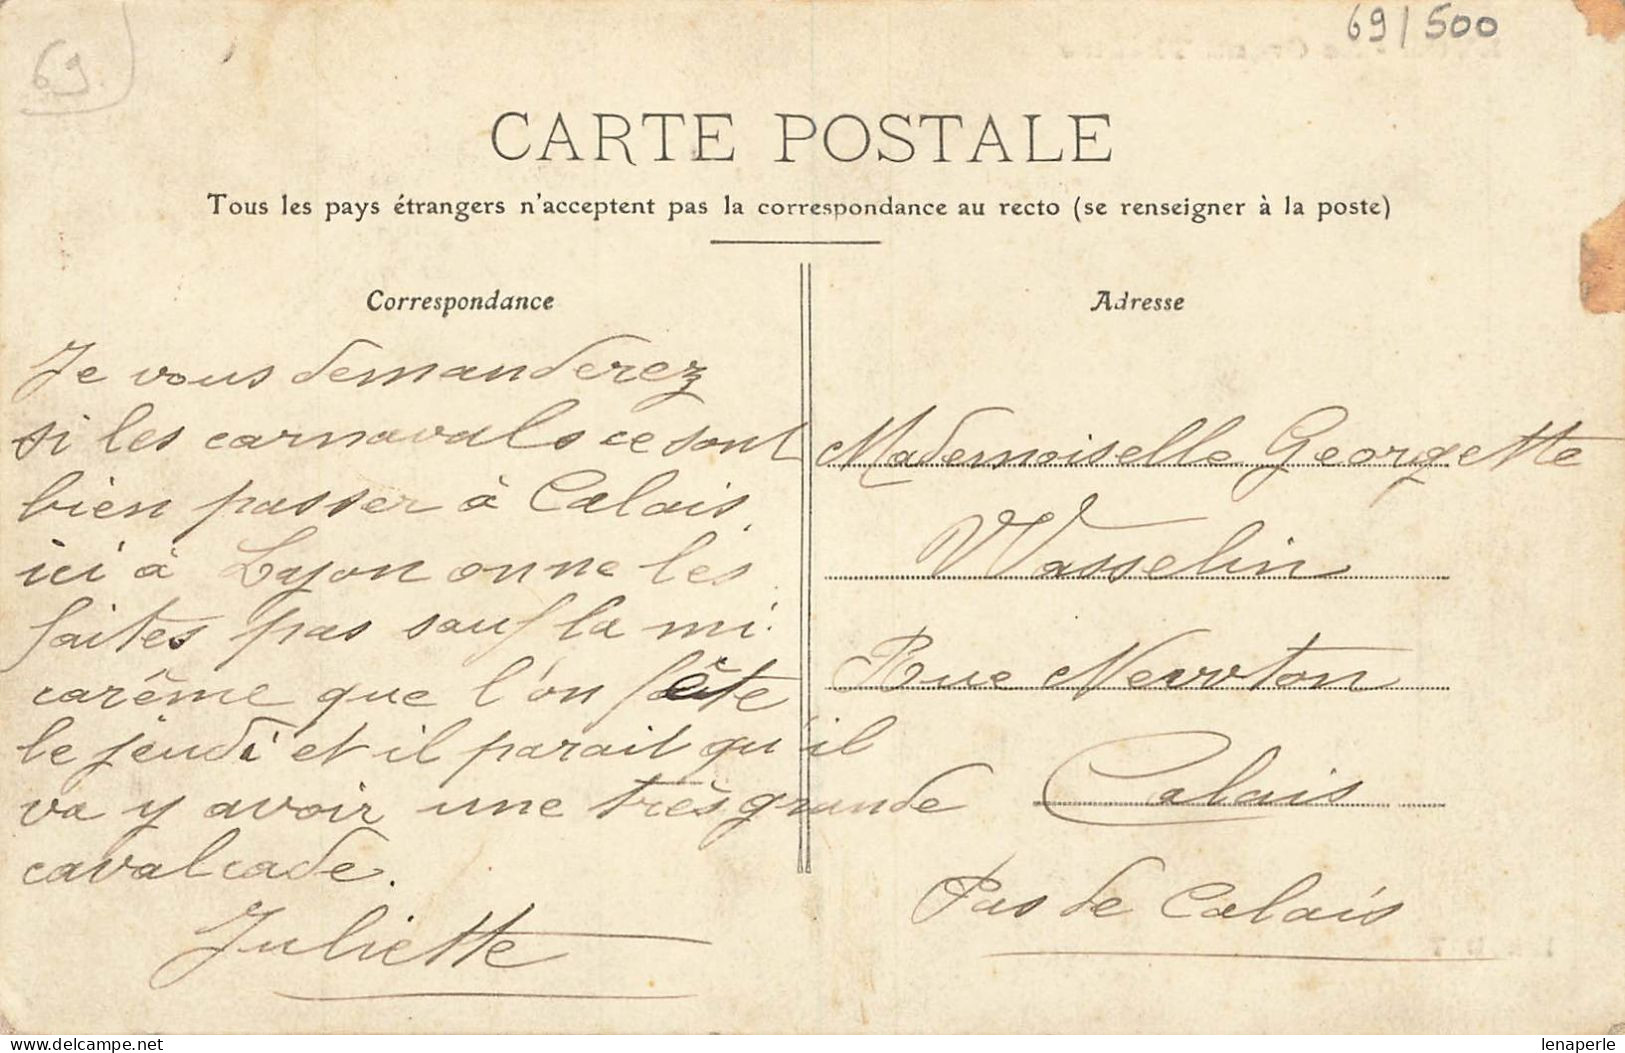 69
69/500
CARTE POSTALE
Tous les pays étrangers n'acceptent pas la correspondance au recto (se renseigner à la poste)
Correspondance
Je vous demanderez
si les carnavals ce sont
bien passer à Calais.
ici à Lyon on ne les
faites pas sauf la mi-
carême que l'on fête
le jeudi et il parait qu'il
va y avoir une très grande
cavalcade.
Juliette
Adresse
Mademoiselle Georgette
Wasselin
Rue Newton
Calais
Pas de Calais
https://www.delcampe.net
lenaperle